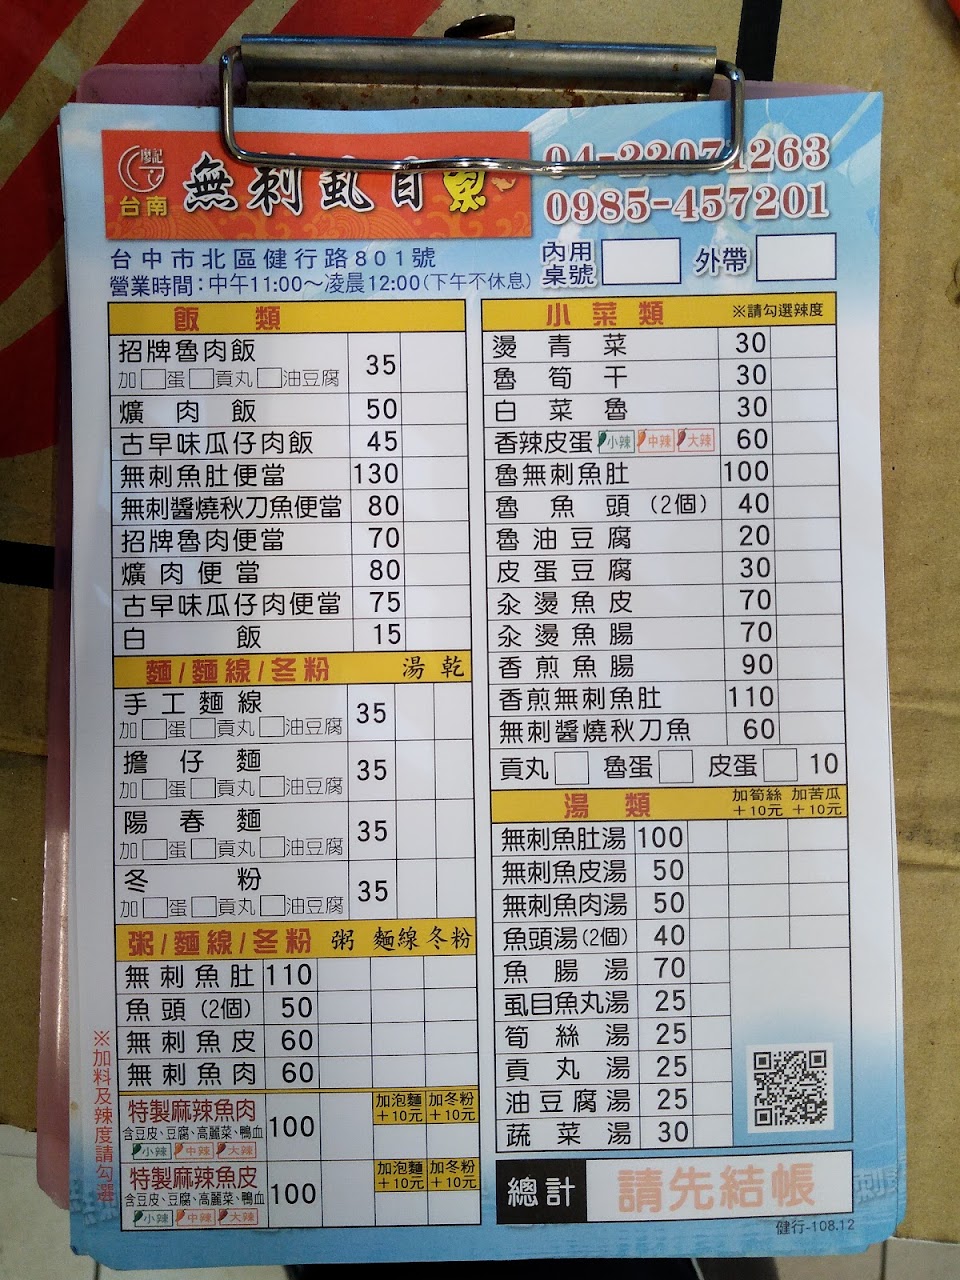 廖記
台南
無刺虱目魚
04-22071263
0985-457201
台中市北區健行路801號
營業時間:中午11:00~凌晨12:00(下午不休息)
內用桌號
外帶
飯類
招牌魯肉飯 35
加□蛋□貢丸□油豆腐
爌肉飯 50
古早味瓜仔肉飯 45
無刺魚肚便當 130
無刺醬燒秋刀魚便當 80
招牌魯肉便當 70
爌肉便當 80
古早味瓜仔肉便當 75
白飯 15
麵/麵線/冬粉 湯 乾
手工麵線 35
加□蛋□貢丸□油豆腐
擔仔麵 35
加□蛋□貢丸□油豆腐
陽春麵 35
加□蛋□貢丸□油豆腐
冬粉 35
加□蛋□貢丸□油豆腐
粥/麵線/冬粉 粥 麵線 冬粉
無刺魚肚 110
魚頭(2個) 50
無刺魚皮 60
無刺魚肉 60
特製麻辣魚肉 100 加泡麵+10元 加冬粉+10元
含豆皮、豆腐、高麗菜、鴨血
小辣 中辣 大辣
特製麻辣魚皮 100 加泡麵+10元 加冬粉+10元
含豆皮、豆腐、高麗菜、鴨血
小辣 中辣 大辣
※加料及辣度請勾選
小菜類 ※請勾選辣度
燙青菜 30
魯筍干 30
白菜魯 30
香辣皮蛋 小辣 中辣 大辣 60
魯無刺魚肚 100
魯魚頭(2個) 40
魯油豆腐 20
皮蛋豆腐 30
汆燙魚皮 70
汆燙魚腸 70
香煎魚腸 90
香煎無刺魚肚 110
無刺醬燒秋刀魚 60
貢丸□ 魯蛋□ 皮蛋□ 10
湯類 加筍絲+10元 加苦瓜+10元
無刺魚肚湯 100
無刺魚皮湯 50
無刺魚肉湯 50
魚頭湯(2個) 40
魚腸湯 70
虱目魚丸湯 25
筍絲湯 25
貢丸湯 25
油豆腐湯 25
蔬菜湯 30
總計 請先結帳
健行-108.12